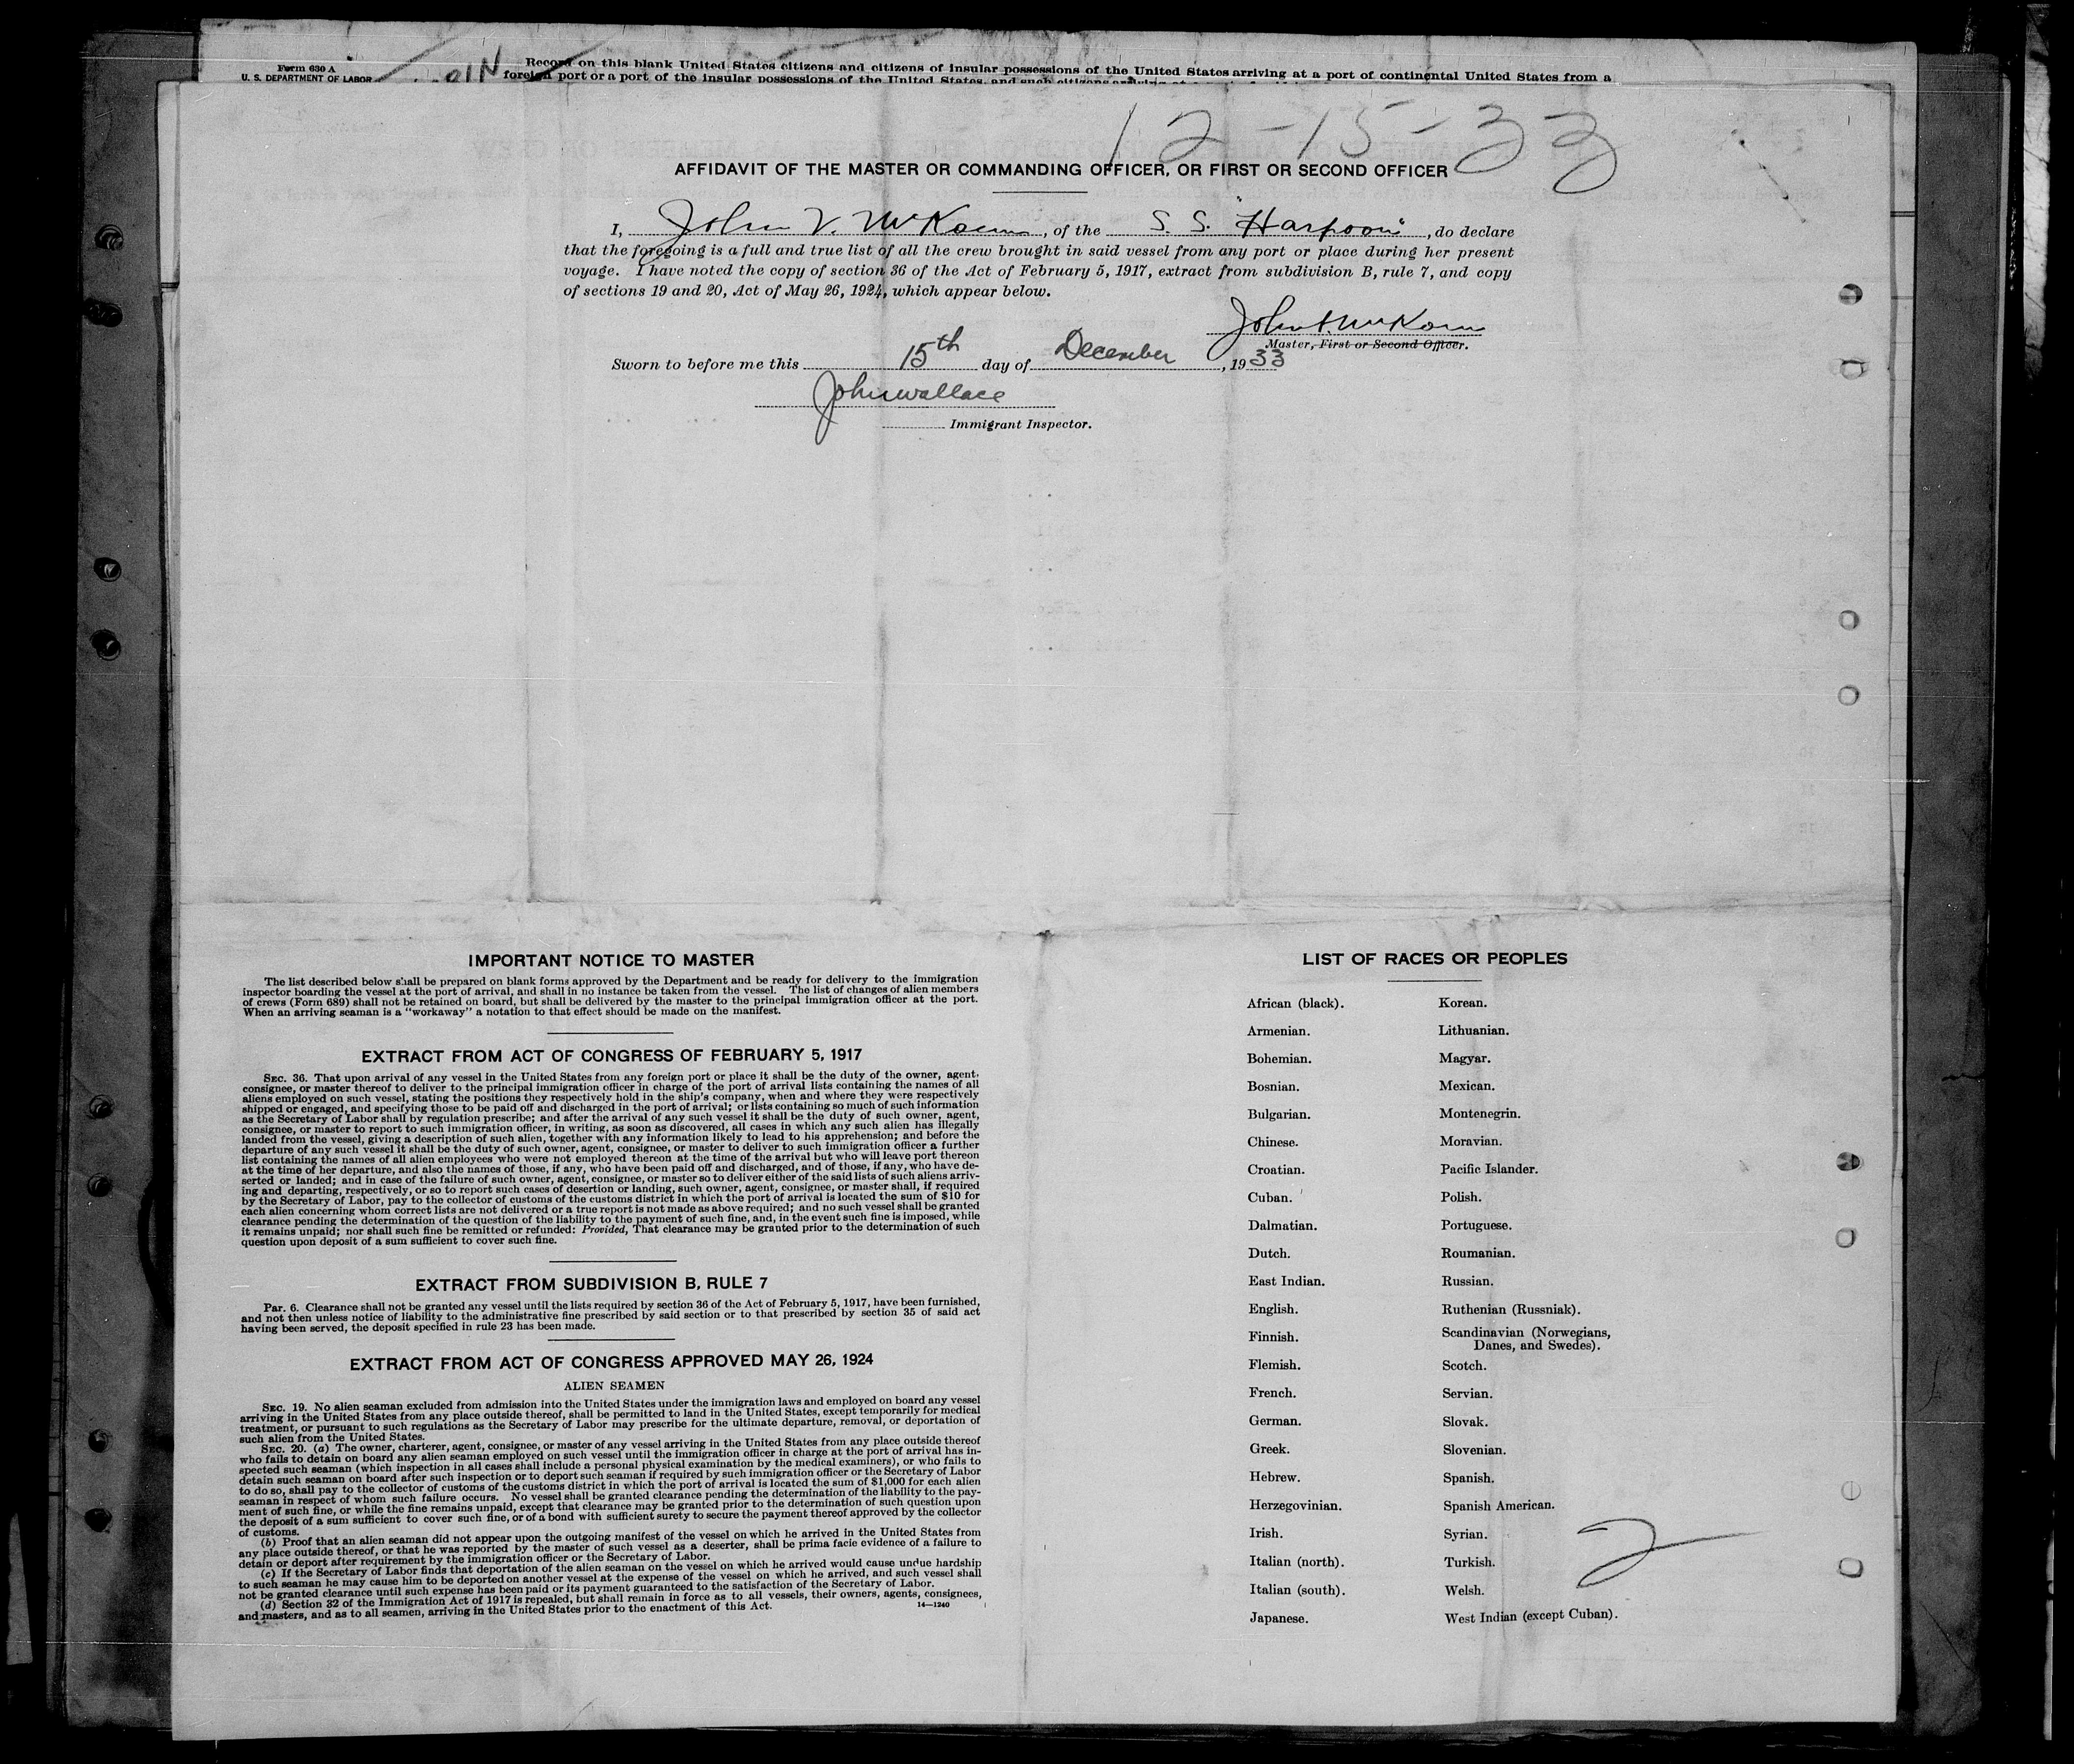 Form 630 A
U. S. DEPARTMENT OF LABOR
Record on this blank United States citizens and citizens of insular possessions of the United States arriving at a port of continental United States from a
foreign port or a port of the insular possessions of the United States, and such citizens
12-15-33
AFFIDAVIT OF THE MASTER OR COMMANDING OFFICER, OR FIRST OR SECOND OFFICER
I, John V. , of the S. S. "Harpoon", do declare
that the foregoing is a full and true list of all the crew brought in said vessel from any port or place during her present
voyage. I have noted the copy of section 36 of the Act of February 5, 1917, extract from subdivision B, rule 7, and copy
of sections 19 and 20, Act of May 26, 1924, which appear below.
Master, First or Second Officer.
Sworn to before me this 15th day of December, 1933
John Wallace
Immigrant Inspector.
IMPORTANT NOTICE TO MASTER
The list described below shall be prepared on blank forms approved by the Department and be ready for delivery to the immigration
inspector boarding the vessel at the port of arrival, and shall in no instance be taken from the vessel. The list of changes of alien members
of crews (Form 689) shall not be retained on board, but shall be delivered by the master to the principal immigration officer at the port.
When an arriving seaman is a "workaway" a notation to that effect should be made on the manifest.
EXTRACT FROM ACT OF CONGRESS OF FEBRUARY 5, 1917
SEC. 36. That upon arrival of any vessel in the United States from any foreign port or place it shall be the duty of the owner, agent,
consignee, or master thereof to deliver to the principal immigration officer in charge of the port of arrival lists containing the names of all
aliens employed on such vessel, stating the positions they respectively hold in the ship's company, when and where they were respectively
shipped or engaged, and specifying those to be paid off and discharged in the port of arrival; or lists containing so much of such information
as the Secretary of Labor shall by regulation prescribe; and after the arrival of any such vessel it shall be the duty of such owner, agent,
consignee, or master to report to such immigration officer, in writing, as soon as discovered, all cases in which any such alien has illegally
landed from the vessel, giving a description of such alien, together with any information likely to lead to his apprehension; and before the
departure of any such vessel it shall be the duty of such owner, agent, consignee, or master to deliver to such immigration officer a further
list containing the names of all alien employees who were not employed thereon at the time of the arrival but who will leave port thereon
at the time of her departure, and also the names of those, if any, who have been paid off and discharged, and of those, if any, who have de-
serted or landed; and in case of the failure of such owner, agent, consignee, or master so to deliver either of the said lists of such aliens arriv-
ing and departing, respectively, or so to report such cases of desertion or landing, such owner, agent, consignee, or master shall, if required
by the Secretary of Labor, pay to the collector of customs of the customs district in which the port of arrival is located the sum of $10 for
each alien concerning whom correct lists are not delivered or a true report is not made as above required; and no such vessel shall be granted
clearance pending the determination of the question of the liability to the payment of such fine, and, in the event such fine is imposed, while
it remains unpaid; nor shall such fine be remitted or refunded: Provided, That clearance may be granted prior to the determination of such
question upon deposit of a sum sufficient to cover such fine.
EXTRACT FROM SUBDIVISION B, RULE 7
Par. 6. Clearance shall not be granted any vessel until the lists required by section 36 of the Act of February 5, 1917, have been furnished,
and not then unless notice of liability to the administrative fine prescribed by said section or to that prescribed by section 35 of said act
having been served, the deposit specified in rule 23 has been made.
EXTRACT FROM ACT OF CONGRESS APPROVED MAY 26, 1924
ALIEN SEAMEN
SEC. 19. No alien seaman excluded from admission into the United States under the immigration laws and employed on board any vessel
arriving in the United States from any place outside thereof, shall be permitted to land in the United States, except temporarily for medical
treatment, or pursuant to such regulations as the Secretary of Labor may prescribe for the ultimate departure, removal, or deportation of
such alien from the United States.
SEC. 20. (a) The owner, charterer, agent, consignee, or master of any vessel arriving in the United States from any place outside thereof
who fails to detain on board any alien seaman employed on such vessel until the immigration officer in charge at the port of arrival has in-
spected such seaman (which inspection in all cases shall include a personal physical examination by the medical examiners), or who fails to
detain such seaman on board after such inspection or to deport such seaman if required by such immigration officer or the Secretary of Labor
to do so, shall pay to the collector of customs of the customs district in which the port of arrival is located the sum of $1,000 for each alien
seaman in respect of whom such failure occurs. No vessel shall be granted clearance pending the determination of the liability to the pay-
ment of such fine, or while the fine remains unpaid, except that clearance may be granted prior to the determination of such question upon
the deposit of a sum sufficient to cover such fine, or of a bond with sufficient surety to secure the payment thereof approved by the collector
of customs.
(b) Proof that an alien seaman did not appear upon the outgoing manifest of the vessel on which he arrived in the United States from
any place outside thereof, or that he was reported by the master of such vessel as a deserter, shall be prima facie evidence of a failure to
detain or deport after requirement by the immigration officer or the Secretary of Labor.
(c) If the Secretary of Labor finds that deportation of the alien seaman on the vessel on which he arrived would cause undue hardship
to such seaman he may cause him to be deported on another vessel at the expense of the vessel on which he arrived, and such vessel shall
not be granted clearance until such expense has been paid or its payment guaranteed to the satisfaction of the Secretary of Labor.
(d) Section 32 of the Immigration Act of 1917 is repealed, but shall remain in force as to all vessels, their owners, agents, consignees,
and masters, and as to all seamen, arriving in the United States prior to the enactment of this Act.
14—1240
LIST OF RACES OR PEOPLES
African (black). Korean.
Armenian. Lithuanian.
Bohemian. Magyar.
Bosnian. Mexican.
Bulgarian. Montenegrin.
Chinese. Moravian.
Croatian. Pacific Islander.
Cuban. Polish.
Dalmatian. Portuguese.
Dutch. Roumanian.
East Indian. Russian.
English. Ruthenian (Russniak).
Finnish. Scandinavian (Norwegians,
Danes, and Swedes).
Flemish. Scotch.
French. Servian.
German. Slovak.
Greek. Slovenian.
Hebrew. Spanish.
Herzegovinian. Spanish American.
Irish. Syrian.
Italian (north). Turkish.
Italian (south). Welsh.
Japanese. West Indian (except Cuban).
2